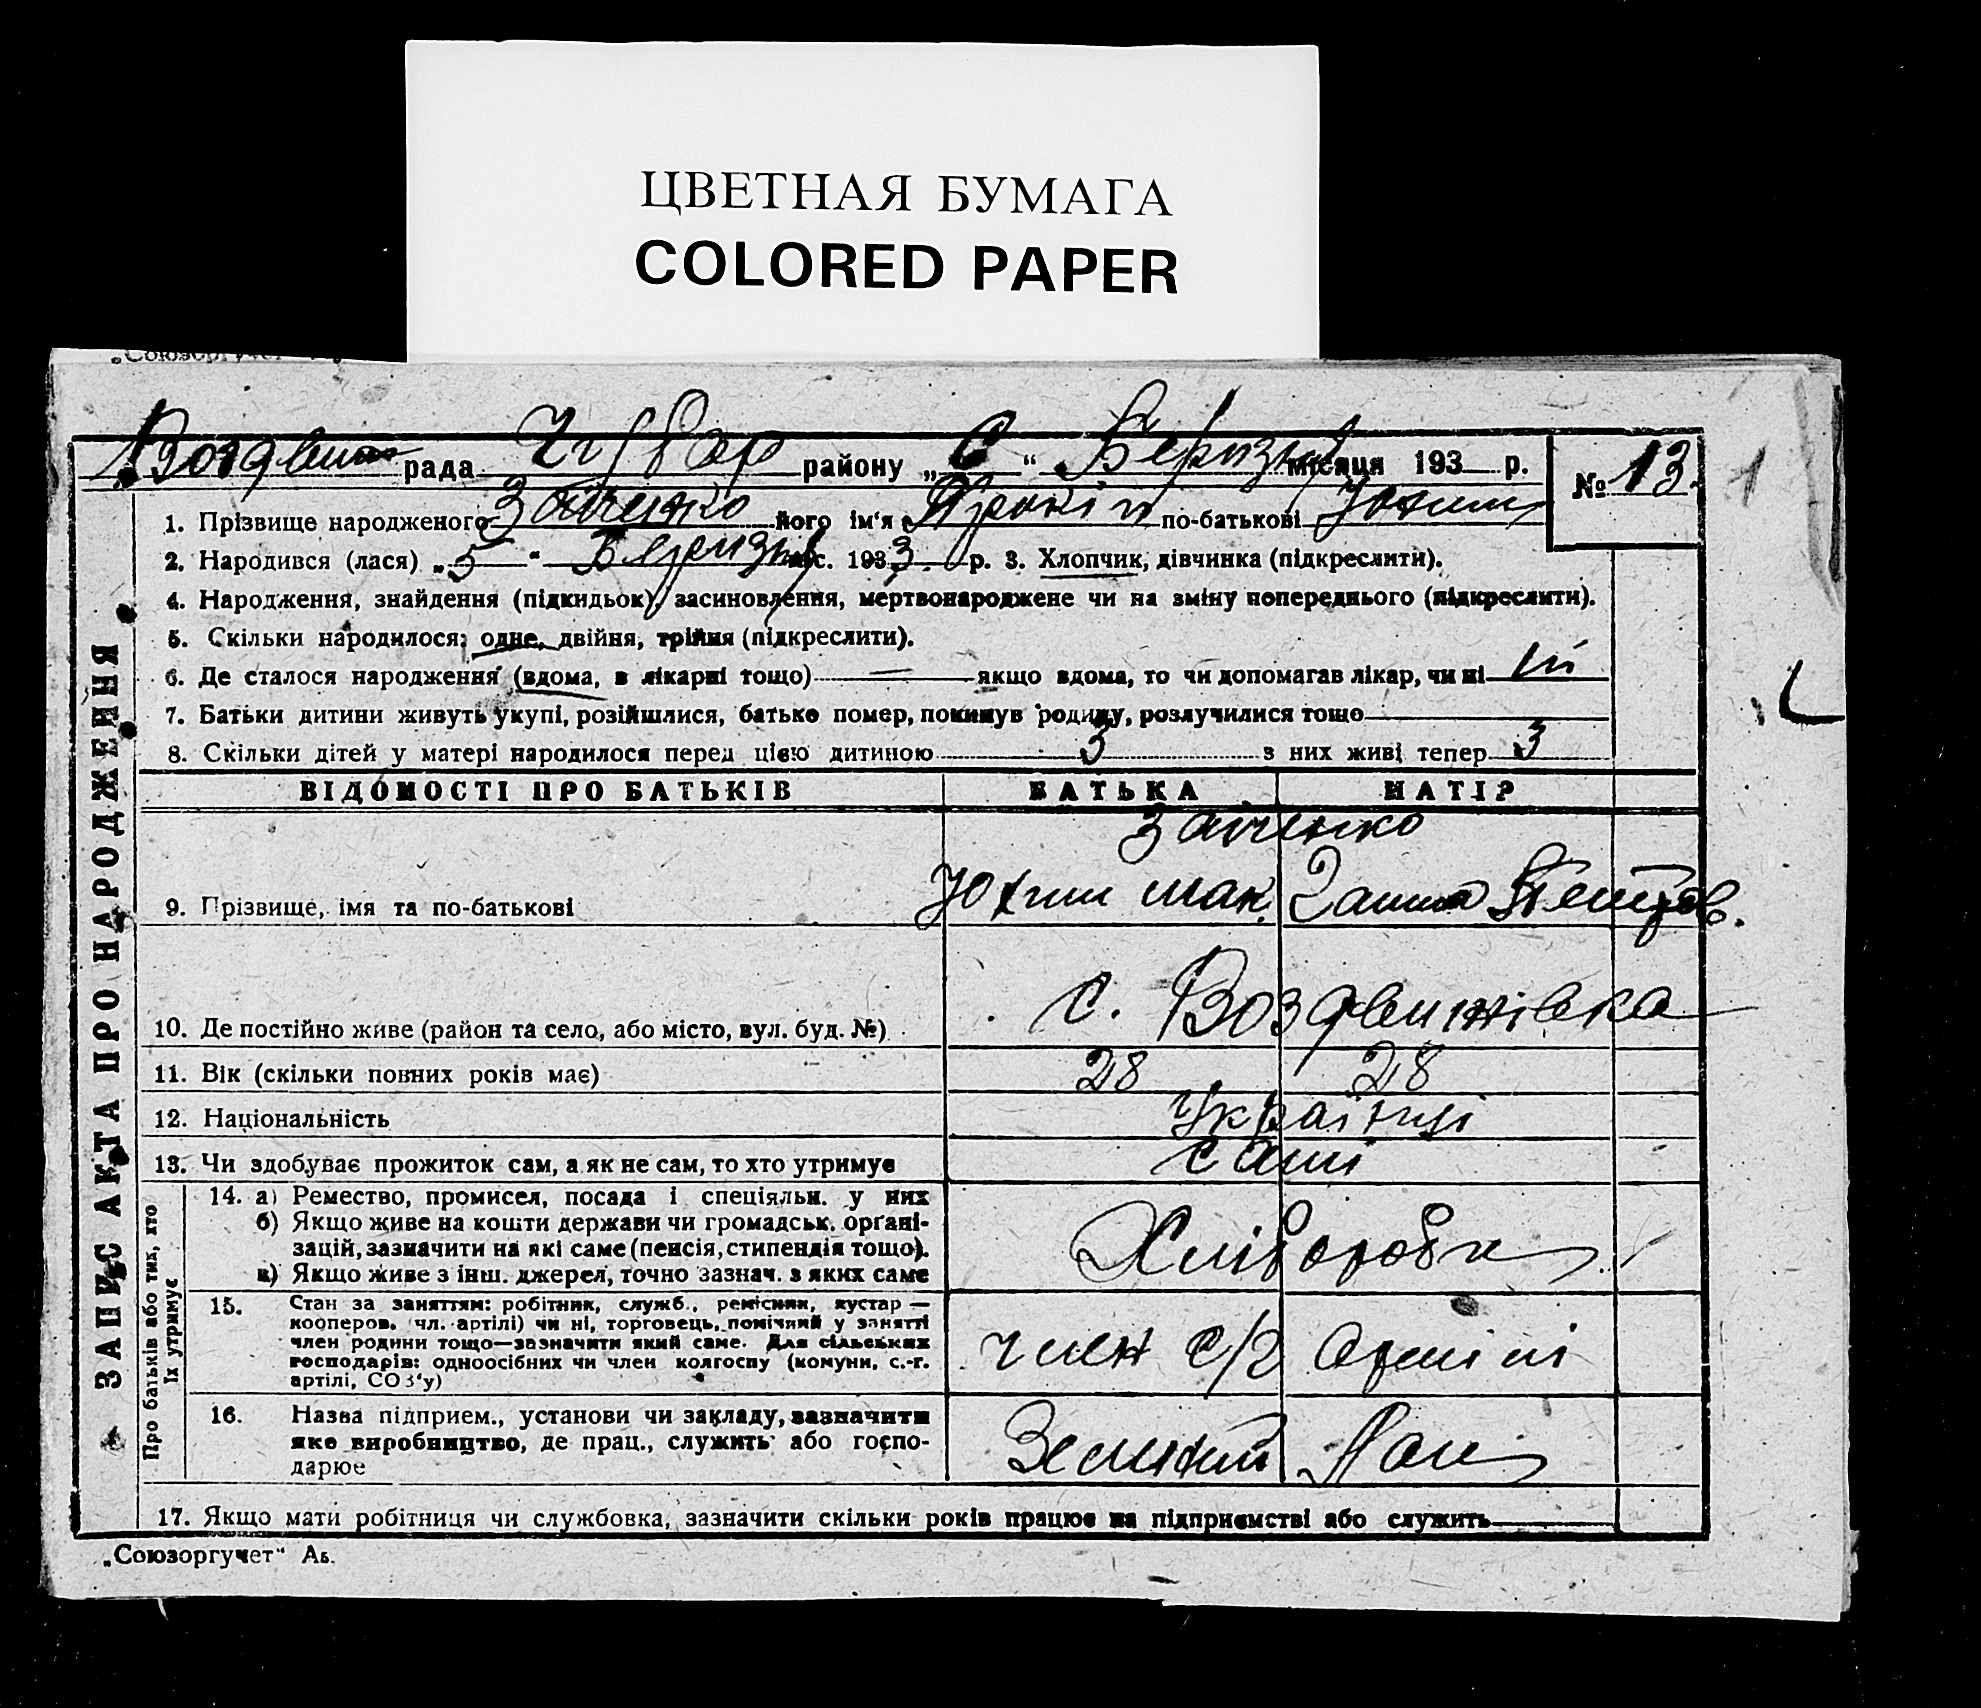 ЦВЕТНАЯ БУМАГА
COLORED PAPER
рада Чубар району „6“ Березня місяця 193 р. № 13 1
1. Прізвище народженого Заіченко його ім‘я по-батькові Юхим
2. Народився (лася) „5“ Березня міс. 1933 р. 3. Хлопчик, дівчинка (підкреслити).
4. Народження, знайдення (підкидьок), засиновлення, мертвонароджене чи на зміну попереднього (підкреслити).
5. Скільки народилося: одне, двійня, трійня (підкреслити).
6. Де сталося народження (вдома, в лікарні тощо) — якщо вдома, то чи допомагав лікар, чи ні ні
7. Батьки дитини живуть укупі, розійшлися, батько помер, покинув родину, розлучилися тощо
8. Скільки дітей у матері народилося перед цією дитиною 3 з них живі тепер 3
ЗАПИС АКТА ПРО НАРОДЖЕННЯ
ВІДОМОСТІ ПРО БАТЬКІВ БАТЬКА МАТІР
Заіченко
9. Прізвище, імя та по-батькові Юхим Мак. Ганна Петров.
10. Де постійно живе (район та село, або місто, вул. буд. №) с. Воздвижівка
11. Вік (скільки повних років має) 28 28
12. Національність Українці
13. Чи здобуває прожиток сам, а як не сам, то хто утримує самі
Про батьків або тих, хто їх утримує
14. а) Ремество, промисел, посада і спеціяльн. у них
б) Якщо живе на кошти держави чи громадськ. орґані-
зацій, зазначити на які саме (пенсія, стипендія тощо).
в) Якщо живе з інш. джерел, точно зазнач. з яких саме
Хліборобн
15. Стан за заняттям: робітник, служб., ремісник, кустар —
кооперов. чл. артілі) чи ні, торговець, помічний у занятті
член родини тощо—зазначити який саме. Для сільських
господарів: одноосібних чи член колгоспу (комуни, с.-г.
артілі, СОЗ‘у)
член с/г артілі
16. Назва підприєм., установи чи закладу, зазначити
яке виробництво, де прац., служить або госпо-
дарює
Лан
17. Якщо мати робітниця чи службовка, зазначити скільки років працює на підприємстві або служить
„Союзоргучет“ Аб.